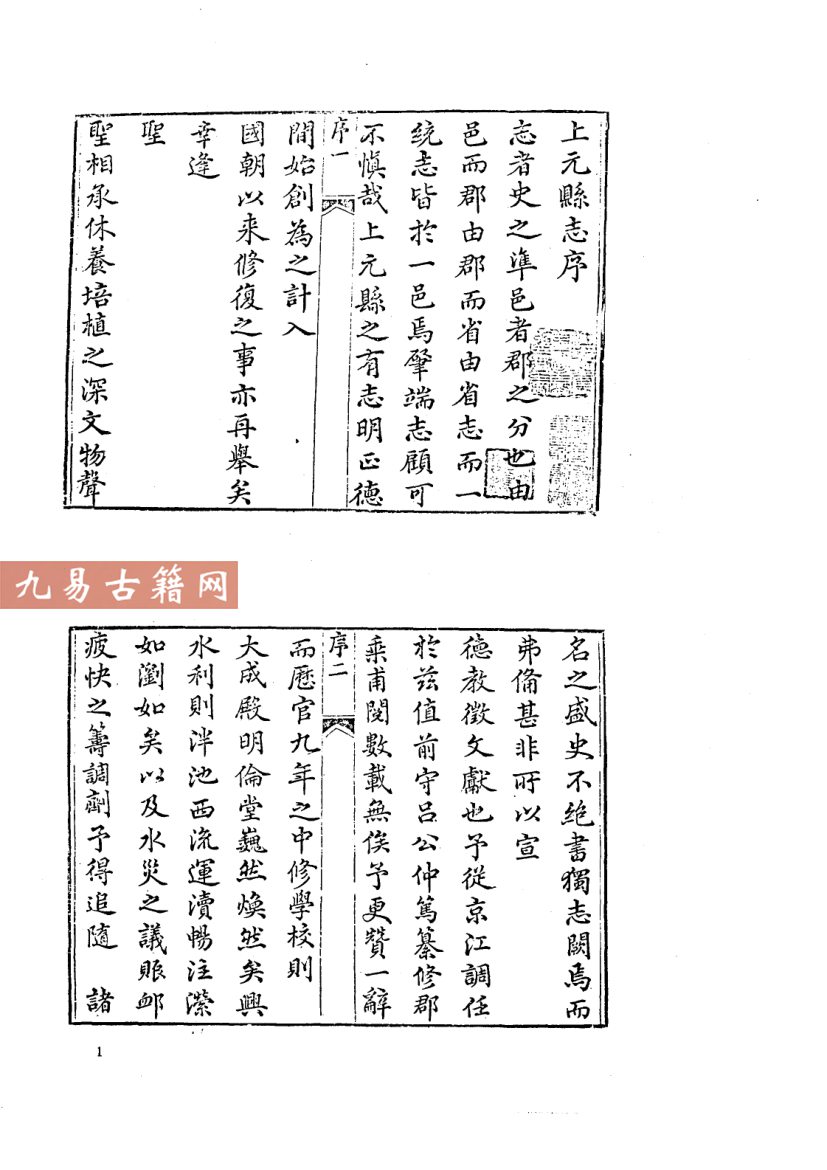 上元縣志序
志者史之準邑者郡之分也由
邑而郡由郡而省由省志而一
統志皆於一邑焉肇端志顧可
不慎哉上元縣之有志明正德
序一
間始創為之計入
國朝以来修復之事亦再舉矣
幸逢
聖
聖相承休養培植之深文物聲
九易古籍网
名之盛史不绝書獨志闕焉而
弗備甚非所以宣
德教徵文獻也予從京江調任
於兹值前守呂公仲篤纂修郡
乘甫閱數載無俟予更贊一辭
序二
而歷官九年之中修學校則
大成殿明倫堂巍然煥然矣興
水利則泮池西流運瀆暢注濚
如瀏如矣以及水災之議賑卹
疲快之籌調劑予得追隨 諸
1